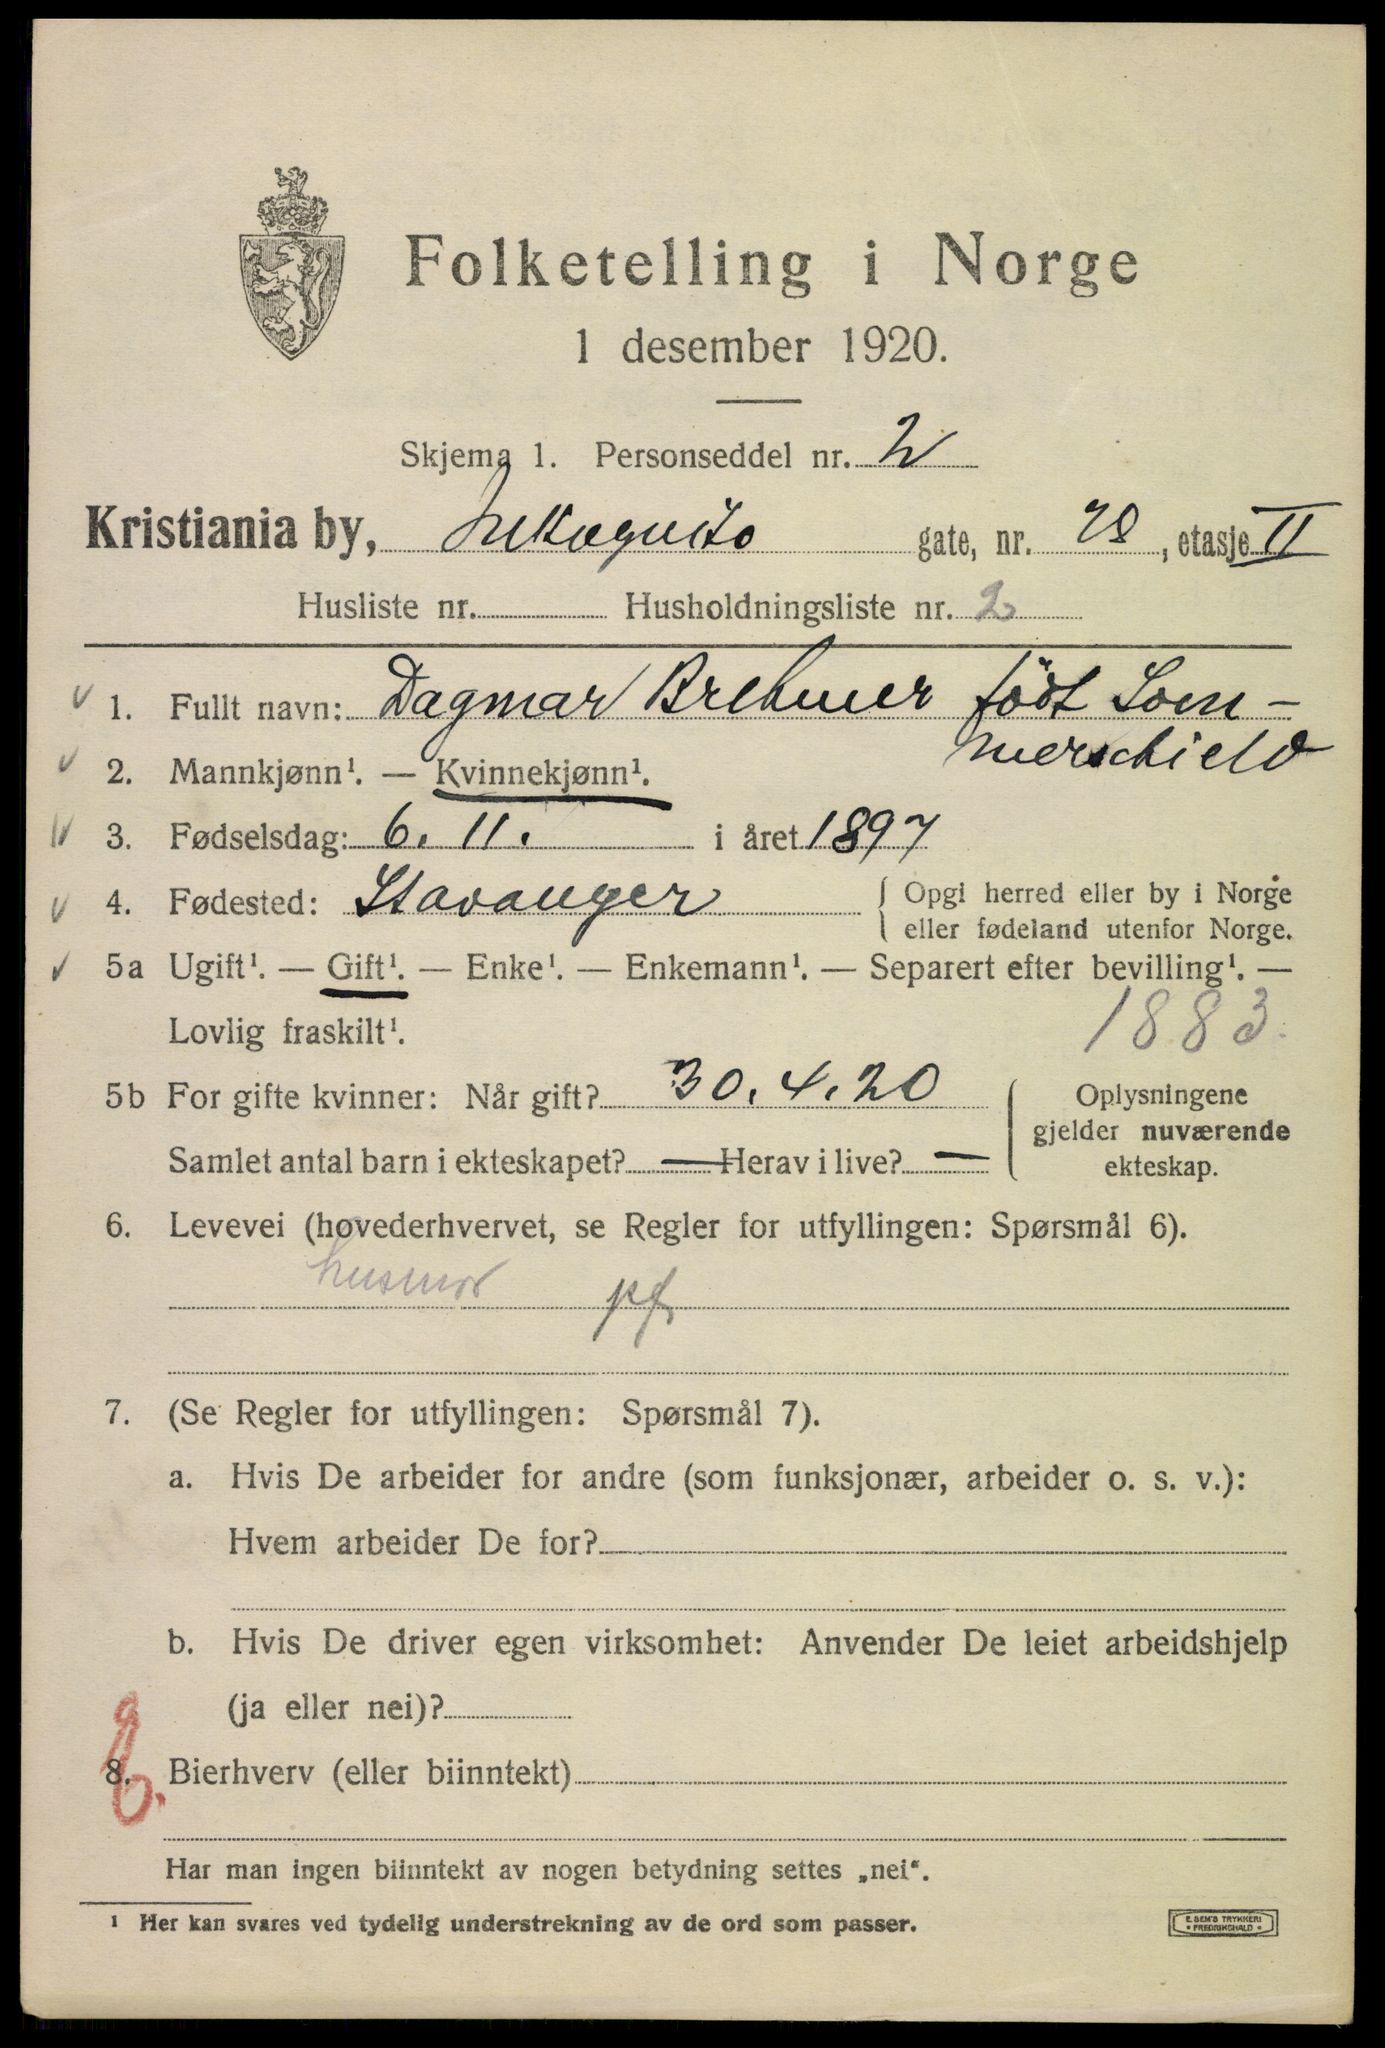 Folketelling i Norge
1 desember 1920.
Skjema 1. Personseddel nr. 2
Kristiania by, Inkognito gate, nr. 28, etasje II
Husliste nr. Husholdningsliste nr. 2
1. Fullt navn: Dagmar Brehmer födt Som-
merschield
2. Mannkjønn¹. — Kvinnekjønn¹.
3. Fødselsdag: 6. 11. i året 1897
4. Fødested: Stavanger { Opgi herred eller by i Norge
eller fødeland utenfor Norge.
5a Ugift¹. — Gift¹. — Enke¹. — Enkemann¹. — Separert efter bevilling¹. —
Lovlig fraskilt¹. 1883.
5b For gifte kvinner: Når gift? 30. 4. 20 Oplysningene
gjelder nuværende
Samlet antal barn i ekteskapet? — Herav i live? — ekteskap.
6. Levevei (hovederhvervet, se Regler for utfyllingen: Spørsmål 6).
husmor pf
7. (Se Regler for utfyllingen: Spørsmål 7).
a. Hvis De arbeider for andre (som funksjonær, arbeider o. s. v.):
Hvem arbeider De for?
b. Hvis De driver egen virksomhet: Anvender De leiet arbeidshjelp
(ja eller nei)?
8. Bierhverv (eller biinntekt)
Har man ingen biinntekt av nogen betydning settes „nei“.
¹ Her kan svares ved tydelig understrekning av de ord som passer.
E. SEM'S TRYKKERI
• FREDRIKSHALD •